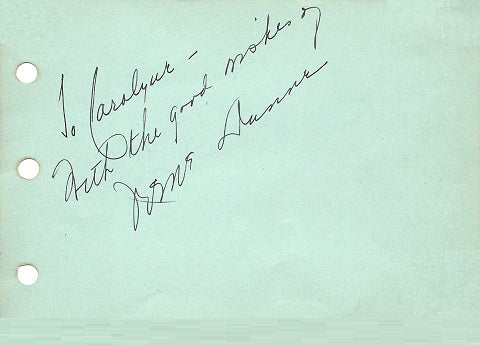 To Carolyne –
With the good wishes of
Irene Dunne